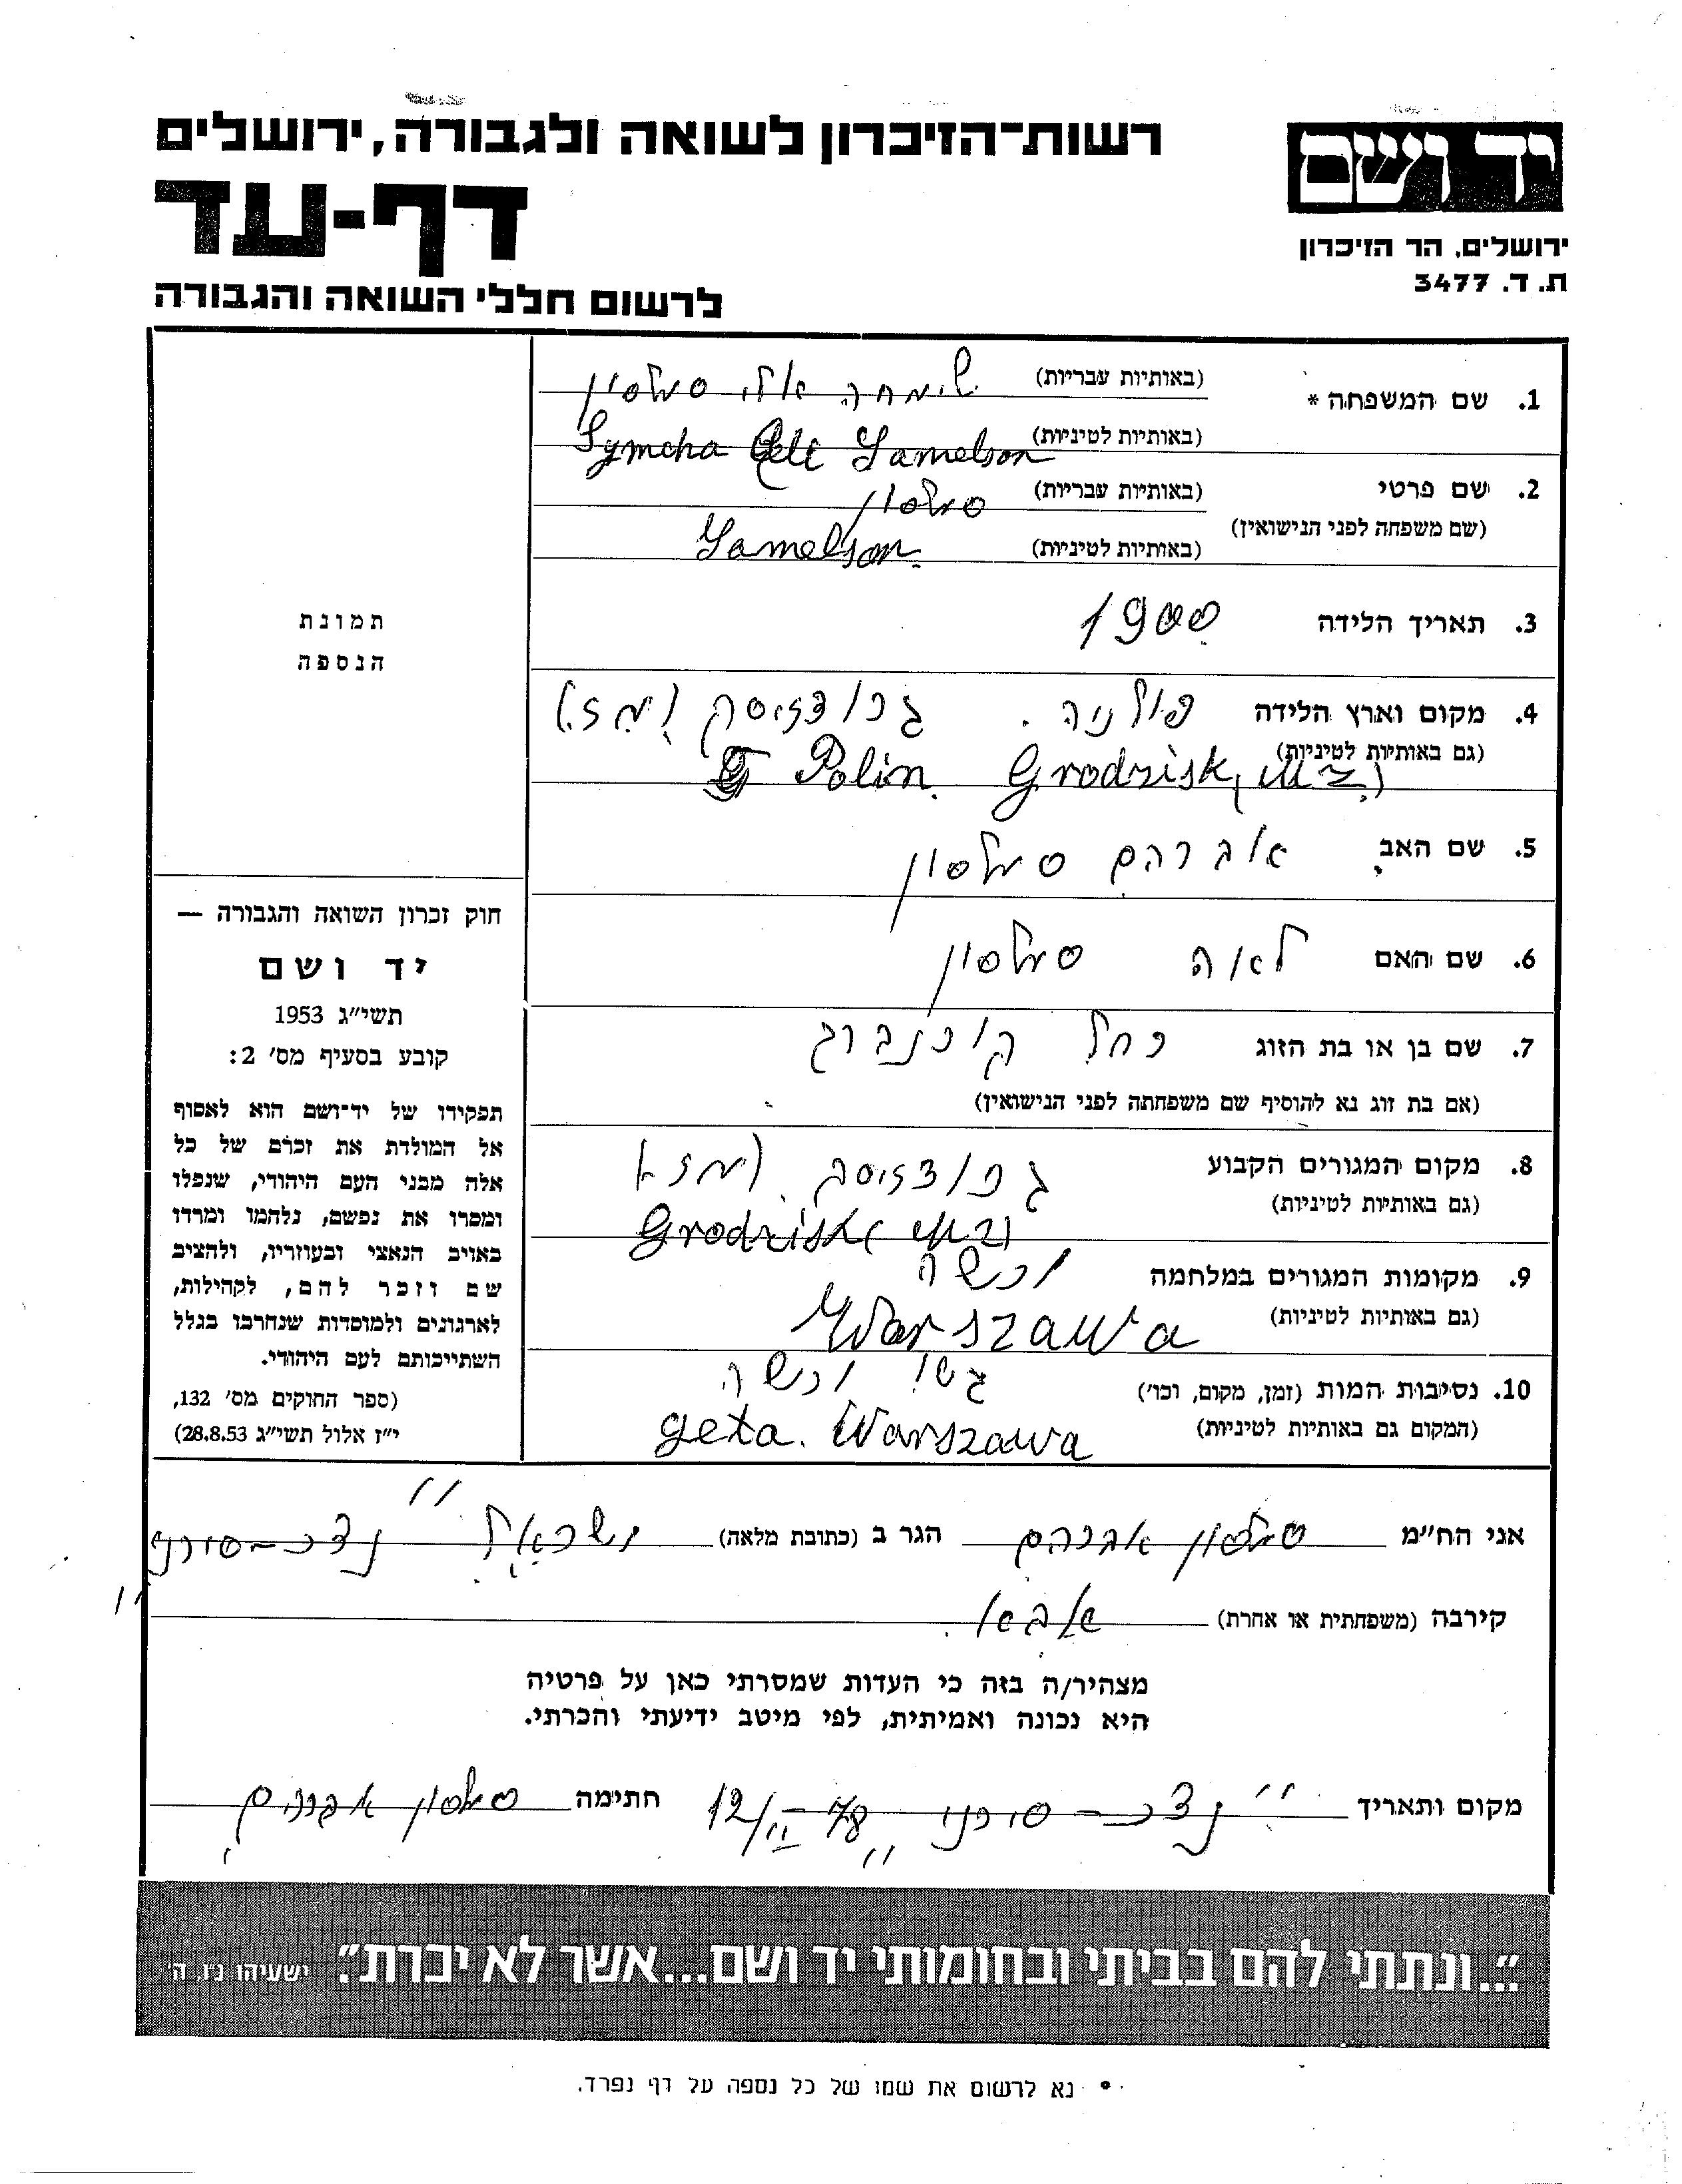 יד ושם
ירושלים, הר הזיכרון
ת. ד. 3477
רשות־הזיכרון לשואה ולגבורה, ירושלים
דף-עד
לרשום חללי השואה והגבורה
תמונת
הנספה
חוק זכרון השואה והגבורה —
יד ושם
תשי״ג 1953
קובע בסעיף מס׳ 2:
תפקידו של יד־ושם הוא לאסוף
אל המולדת את זכרם של כל
אלה מבני העם היהודי, שנפלו
ומסרו את נפשם, נלחמו ומרדו
באויב הנאצי ובעוזריו, ולהציב
שם וזכר להם, לקהילות,
לארגונים ולמוסדות שנחרבו בגלל
השתייכותם לעם היהודי.
(ספר החוקים מס׳ 132,
י״ז אלול תשי״ג 28.8.53)
1. שם המשפחה * (באותיות עבריות) שימחה אלי סמלסון
(באותיות לטיניות) Symcha Eli Samelson
2. שם פרטי (באותיות עבריות) סמלסון
(שם משפחה לפני הנישואין)
(באותיות לטיניות) Samelson
3. תאריך הלידה 1900
4. מקום וארץ הלידה פולניה. גרודזיסק (מז.)
(גם באותיות לטיניות) Polin Grodzisk, Maz)
5. שם האב אברהם סמלסון
6. שם האם לאה סמלסון
7. שם בן או בת הזוג רחל
(אם בת זוג נא להוסיף שם משפחתה לפני הנישואין)
8. מקום המגורים הקבוע גרודזיסק (מז)
(גם באותיות לטיניות) Grodzisk
9. מקומות המגורים במלחמה ורשה
(גם באותיות לטיניות) Warszawa
10. נסיבות המות (זמן, מקום, וכו׳) גטו ורשה
(המקום גם באותיות לטיניות) geta. Warszawa
אני הח״מ סמלסון אברהם הגר ב (כתובת מלאה) ישראל
קירבה (משפחתית או אחרת) אבא.
מצהיר/ה בזה כי העדות שמסרתי כאן על פרטיה
היא נכונה ואמיתית, לפי מיטב ידיעתי והכרתי.
מקום ותאריך חתימה סמלסון אברהם
״...ונתתי להם בביתי ובחומותי יד ושם...אשר לא יכרת״. ישעיהו נ״ו, ה׳
* נא לרשום את שמו של כל נספה על דף נפרד.